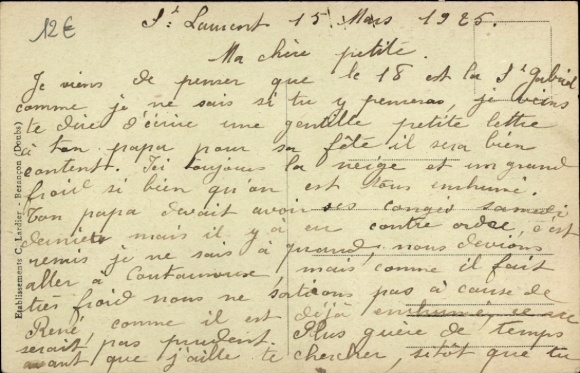 12€
St Laurent 15 Mars 1925.
Ma chère petite.
Je viens de penser que le 18 est la St Gabriel
comme je ne sais si tu y penseras, je viens
te dire d'écrire une gentille petite lettre
à ton papa pour sa fête il sera bien
content. Ici toujours la neige et un grand
froid si bien qu'on est tous enrhumé.
Ton papa devait avoir ses congés samedi
dernier mais il y a eu contre ordre, c'est
remis je ne sais à quand, nous devions
aller à mais comme il fait
très froid nous ne sortirons pas à cause de
René, comme il est déjà enrhumé, ce ne
serait pas prudent. Plus guère de temps
avant que j'aille te chercher, sitôt que tu
Etablissements C. Lardier - Besançon (Doubs)